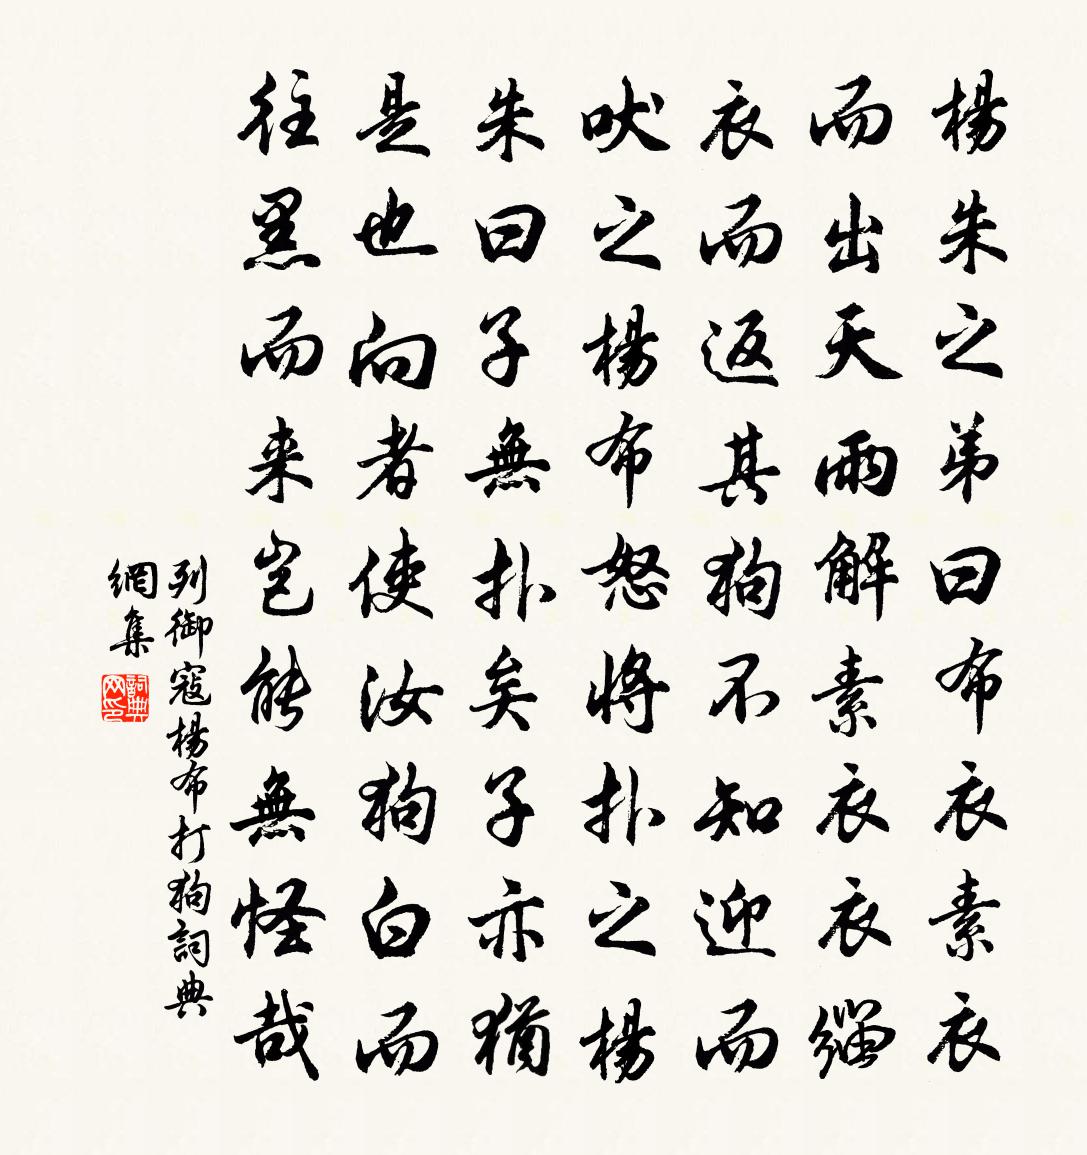 楊朱之弟曰布衣素衣
而出天雨解素衣衣緇
衣而返其狗不知迎而
吠之楊布怒將扑之楊
朱曰子無扑矣子亦猶
是也向者使汝狗白而
往黑而来豈能無怪哉
列御寇楊布打狗詞典
網集
詞典
网印